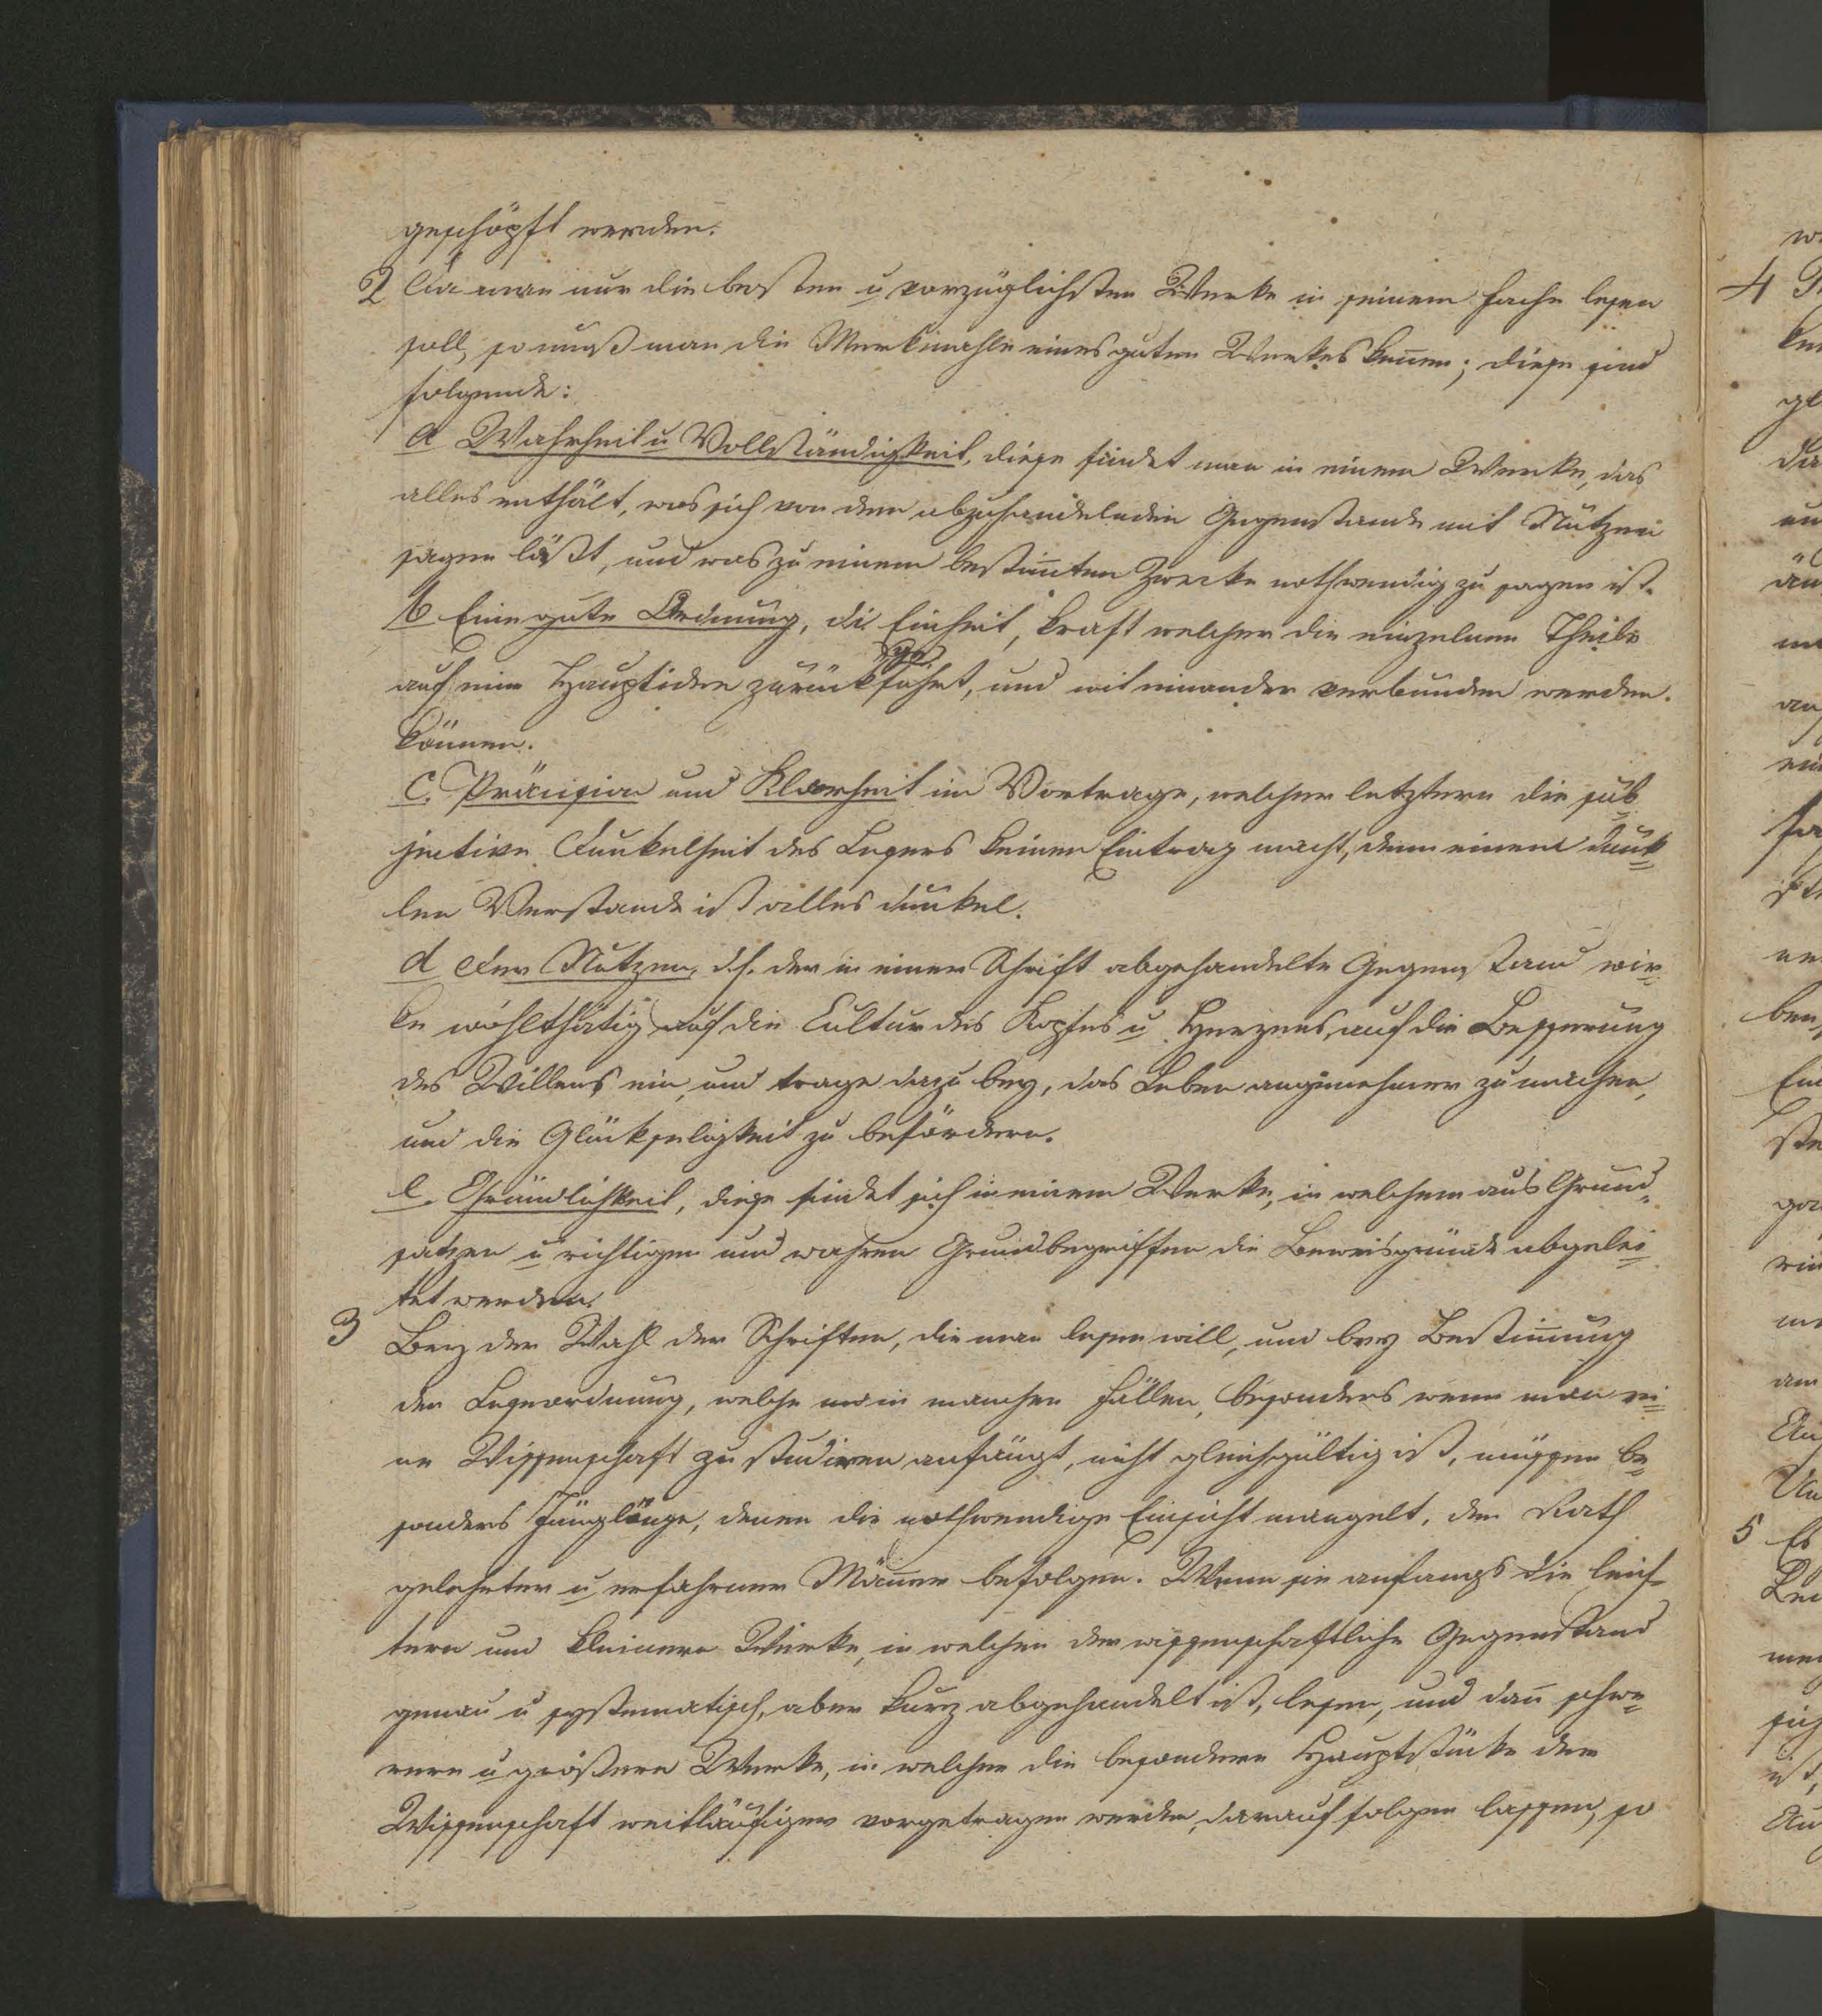 geschöpft werden.
2 Da man nur die besten u vorzüglichsten Werke in seinem Fache lesen
soll, so muß man die Merkmahle eines guten Werkes keñen; diese sind
folgende:
a Wahrheit u Vollständigkeit, diese findet man in einem Werke, das
alles enthält, was sich von dem abzuhandelnden Gegenstande mit Nutzen
sagen läßt, und was zu einem bestim̃ten Zwecke nothwendig zu sagen ist.
b Eine gute Ordnung, d.i. Einheit, kraft welcher die einzelnen Theile
auf eine Hauptidee zurückgeführt, und mit einander verbunden werden.
können.
c. Präcision und Klarheit im Vortrage, welcher letztern die sub
jective Dunkelheit des Lesers keinen Eintrag macht, denn einem dunk=
len Verstande ist alles dunkel.
d Der Nutzen, d.h. der in einer Schrift abgehandelte Gegenstand wir=
ke wohlthätig auf die Cultur des Kopfes u Herzens, auf die Besserung
des Willens ein, und trage dazu bey, das Leben angenehmer zu machen,
und die Glückseligkeit zu befördern.
e. Gründlichkeit, diese findet sich in einem Werke, in welchem aus Grund=
sätzen u richtigen und wahren Grundbegriffen die Beweisgründe abgelei=
tet werden.
3 Bey der Wahl der Schriften, die man lesen will, und bey Bestim̃ung
der Leseordnung, welche in manchen Fällen, besonders wenn man ei=
ne Wissenschaft zu studiren anfängt, nicht gleichgültig ist, müssen be=
sonders Jünglinge, denen die nothwendige Einsicht mangelt, den Rath
gelehrter u erfahrner Mäñer befolgen. Wenn sie anfangs die leich=
tern und kleinern Werke, in welchen der wissenschaftliche Gegenstand
genau u systematisch, aber kurz abgehandelt ist, lesen, und dañ schwe=
rere u größere Werke, in welchen die besondern Hauptstücke der
Wissenschaft weitläufiger vorgetragen werden, darauf folgen lassen, so